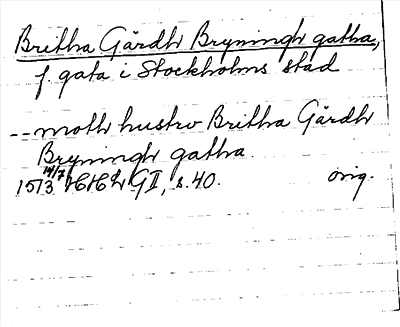 Britha Gårdh Bryningh gatha,
f. gata i Stockholms stad
-- moth hustrv Britha Gårdh
Bryningh gatha.
1513 14/7 HHL GII, s. 40. orig.